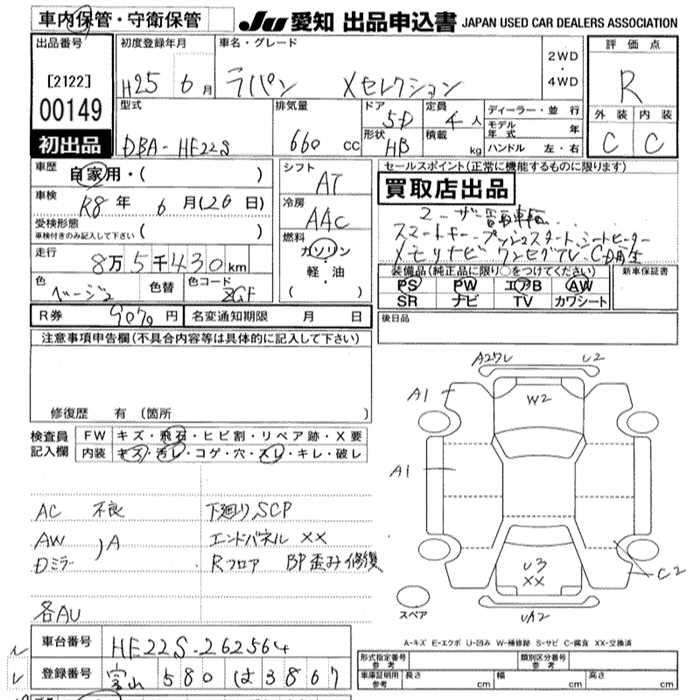 車内保管・守衛保管
JU 愛知 出品申込書 JAPAN USED CAR DEALERS ASSOCIATION
出品番号
[2122]
00149
初出品
初度登録年月
H25 6月
車名・グレード
ラパン Xセレクション
2WD
・
4WD
評価点
R
外装 内装
C C
型式
DBA-HE22S
排気量
660 cc
ドア
5D
形状
HB
定員
4人
積載 kg
ディーラー・並行
モデル年式 年
ハンドル 左・右
車歴
自家用・( )
車検
R8年 6月(26日)
受検形態
車検付きのみ記入して下さい ( )
走行
8万5千430km
色
ベージュ
色替
色コード
ZGF
シフト
AT
冷房
AAC
燃料
ガソリン
・
軽・油
( )
セールスポイント(正常に機能するものに限ります)
買取店出品
スマートキー プッシュスタート シートヒーター
メモリナビ ワンセグTV、CD再生
装備品(純正品に限り○をつけてください)
PS PW エアB AW
SR ナビ TV カワシート
新車保証書
R券 9070円 名変通知期限 月 日
後日品
注意事項申告欄(不具合内容等は具体的に記入して下さい)
修復歴 有(箇所 )
検査員
記入欄
FW キズ・飛石・ヒビ割・リペア跡・X要
内装 キズ・汚レ・コゲ・穴・スレ・キレ・破レ
AC 不良
AW
Dミラー )A
各AU
下廻り SCP
エンドパネル XX
Rフロア BP歪み修複
A2ワレ U2
A1
W2
A1
U3
XX
C2
UA2
スペア
A-キズ E-エクボ U-凹み W-補修跡 S-サビ C-腐食 XX-交換済
車台番号 HE22S-262564
登録番号 富山 580 は 3867
形式指定番号
参考
類別区分番号
参考
車庫証明用
参考
長さ cm 幅 cm 高さ cm